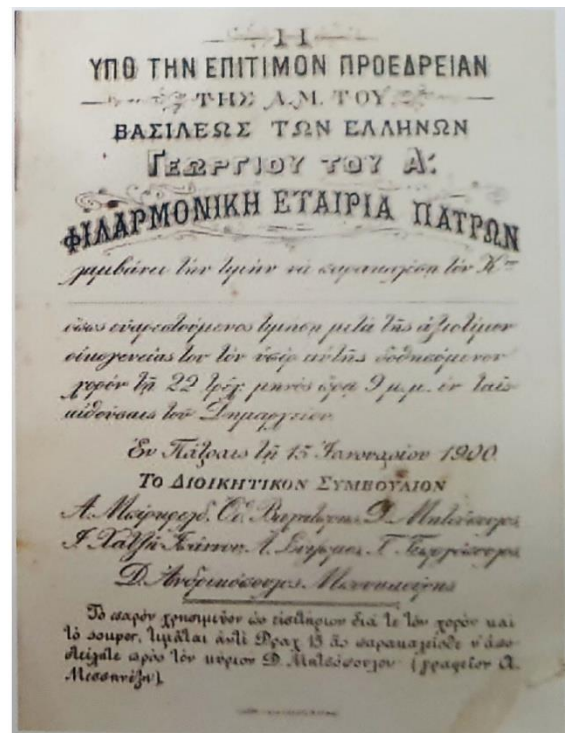 Η
ΥΠΟ ΤΗΝ ΕΠΙΤΙΜΟΝ ΠΡΟΕΔΡΕΙΑΝ
ΤΗΣ Α.Μ. ΤΟΥ
ΒΑΣΙΛΕΩΣ ΤΩΝ ΕΛΛΗΝΩΝ
ΓΕΩΡΓΙΟΥ ΤΟΥ Α΄.
ΦΙΛΑΡΜΟΝΙΚΗ ΕΤΑΙΡΙΑ ΠΑΤΡΩΝ
λαμβάνει την τιμήν να παρακαλέση τον Κον
όπως ευαρεστούμενος τιμήση μετά της αξιοτίμου
οικογενείας του τον υπέρ αυτής δοθησόμενον
χορόν τη 22 τρέχ. μηνός ώρα 9 μ.μ. εν ταις
αιθούσαις του Δημαρχείου
Εν Πάτραις τη 15 Ιανουαρίου 1900
ΤΟ ΔΙΟΙΚΗΤΙΚΟΝ ΣΥΜΒΟΥΛΙΟΝ
Α. Οδ. Δ. Ματσόπουλος
Ι. Χατζή Ιωάννου, Γ. Γεωργόπουλος
Δ. Ανδρικόπουλος
Το παρόν χρησιμεύον ως εισιτήριον διά τε τον χορόν και
το σουπέ, τιμάται αντί Δραχ 15 ας παρακαλείσθε ν' απο
στείλητε προς τον κύριον Δ. Ματσόπουλον (γραφείον Α.
Μεσσηνέζη).